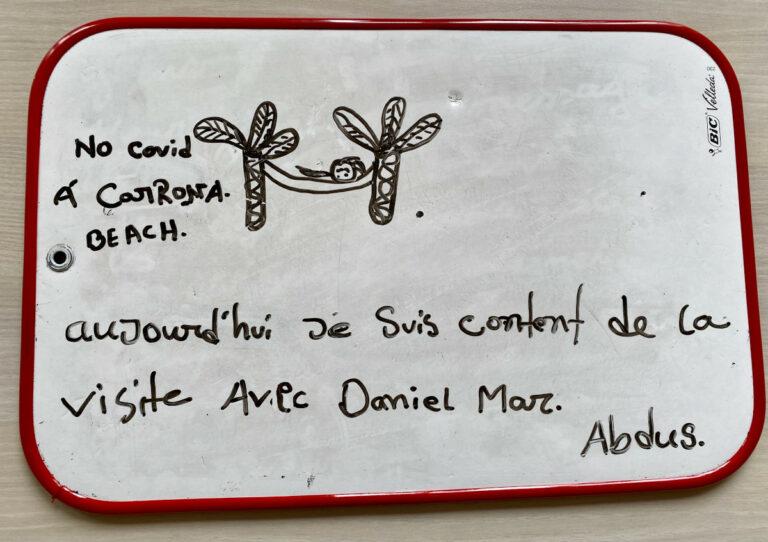 No covid
A CORRONA.
BEACH.
BIC Velleda
aujourd'hui je suis content de la
visite Avec Daniel Mar.
Abdus.